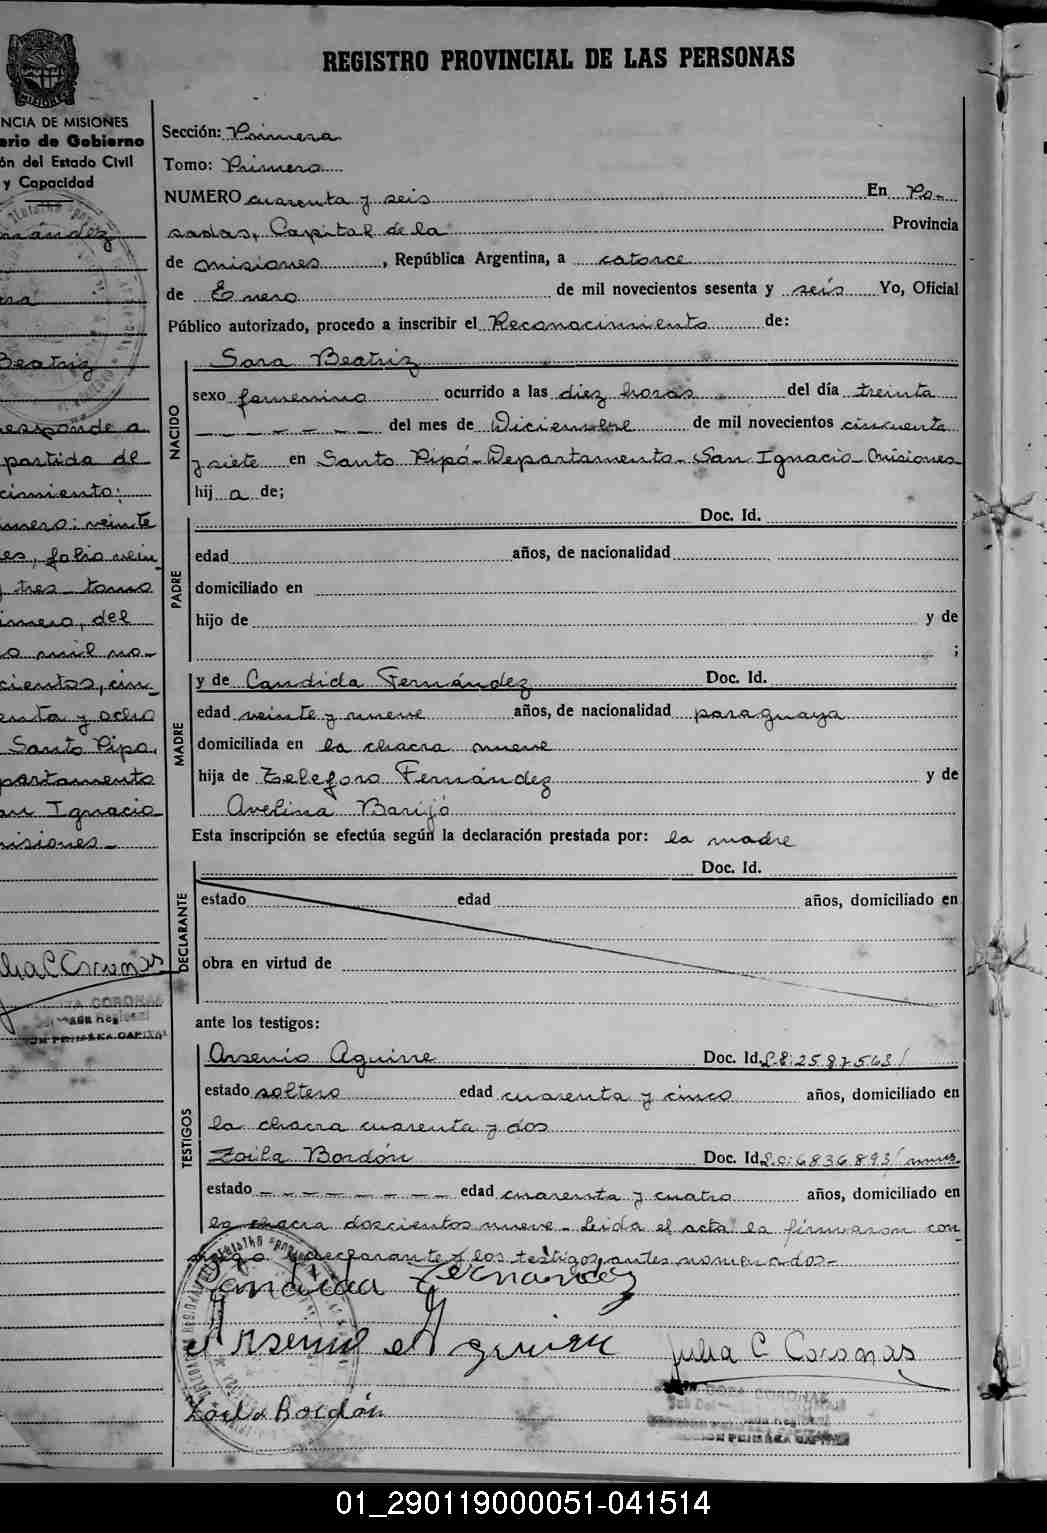 REGISTRO PROVINCIAL DE LAS PERSONAS
MISIONES
NCIA DE MISIONES
erio de Gobierno
ón del Estado Civil
y Capacidad
nández
ra
Beatriz
responde a
partida de
cimiento:
mero: veinte
es, folio vein
y tres tomo
imero, del
o mil no-
cientos, cin-
enta y ocho
Santo Pipo,
partamento
an Ignacio
misiones-
lia C Coronas
CORONAS
PRIMERA CAPITAL
Sección: Primera
Tomo: Primero
NUMERO cuarenta y seis En Po-
sadas, Capital de la Provincia
de misiones, República Argentina, a catorce
de Enero de mil novecientos sesenta y seis Yo, Oficial
Público autorizado, procedo a inscribir el Reconocimiento de:
NACIDO
Sara Beatriz
sexo femenino ocurrido a las diez horas del día treinta
_ _ _ _ _ _ del mes de Diciembre de mil novecientos cincuenta
y siete en Santo Pipó-Departamento-San Ignacio-Misiones
hij a de;
PADRE
Doc. Id.
edad años, de nacionalidad
domiciliado en
hijo de y de
;
MADRE
y de Candida Fernández Doc. Id.
edad veinte y nueve años, de nacionalidad paraguaya
domiciliada en la chacra nueve
hija de Zeleforo Fernández y de
Avelina Barijó
Esta inscripción se efectúa según la declaración prestada por: la madre
DECLARANTE
Doc. Id.
estado edad años, domiciliado en
obra en virtud de
ante los testigos:
TESTIGOS
Arsenio Aguirre Doc. Id. L.E:2587563/
estado soltero edad cuarenta y cinco años, domiciliado en
la chacra cuarenta y dos
Zoila Bordón Doc. Id. L.C:6836893/
estado _ _ _ _ _ _ _ edad cuarenta y cuatro años, domiciliado en
la chacra doscientos nueve- Leida el acta la firmaron con
migo la declarante y los testigos antes nombrados-
Candida Fernandez
Arsenio Aguirre
Julia C Coronas
CORONAS
PRIMERA CAPITAL
Zoila Bordón
01_290119000051-041514